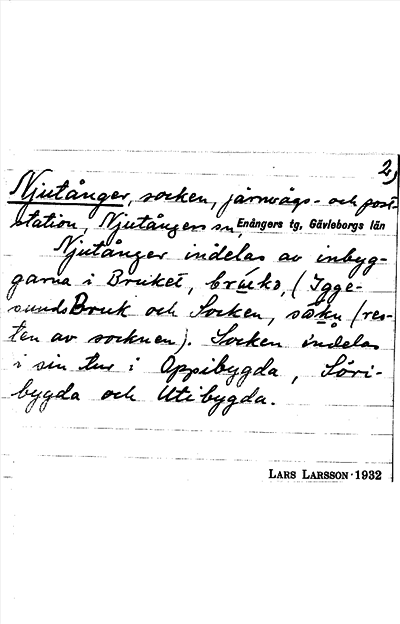 2)
Njutånger, socken, järnvägs- och post-
station, Njutångers sn, Enångers tg, Gävleborgs län
Njutånger indelas av inbyg-
garna i Bruket, (Igge-
sunds Bruk och Socken, (res-
ten av socknen). Socken indelas
i sin tur i Oppibygda, Söri-
bygda och Utibygda.
LARS LARSSON · 1932